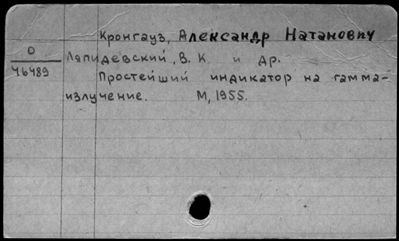 Кронгауз, Александр Натанович
О
46489
Лапидевский, В. К. и др.
Простейший индикатор на гамма-
излучение. М, 1955.